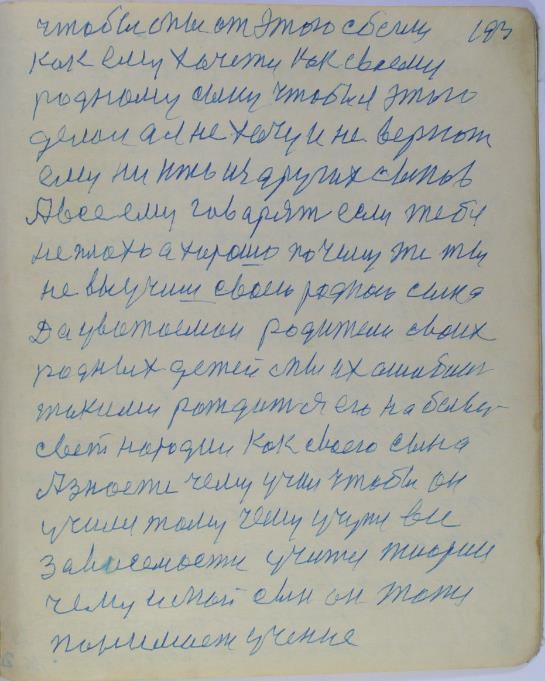 чтобы мы от этого сбегли 193
Как ему хочети как своему
родному сыну чтобы я этого
делал а я не хочу и не вернот
ему ни из других сынов
А все ему говарят если тебе
неплохо а хорошо почему же ты
не выучиш своего родного сынка
Да уважаемаи родители своих
родных детей мы их
такими рождат я его на белый
свет народил как своего сына
А знаети чему учил чтобы он
училя тому чему учути вы
Зависемости учити тиории
чему и мой сын он тожи
понимает учение